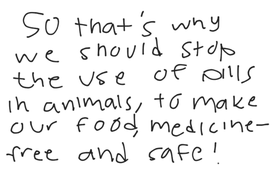 So that's why
we should stop
the use of pills
in animals, to make
our food medicine-
free and safe!